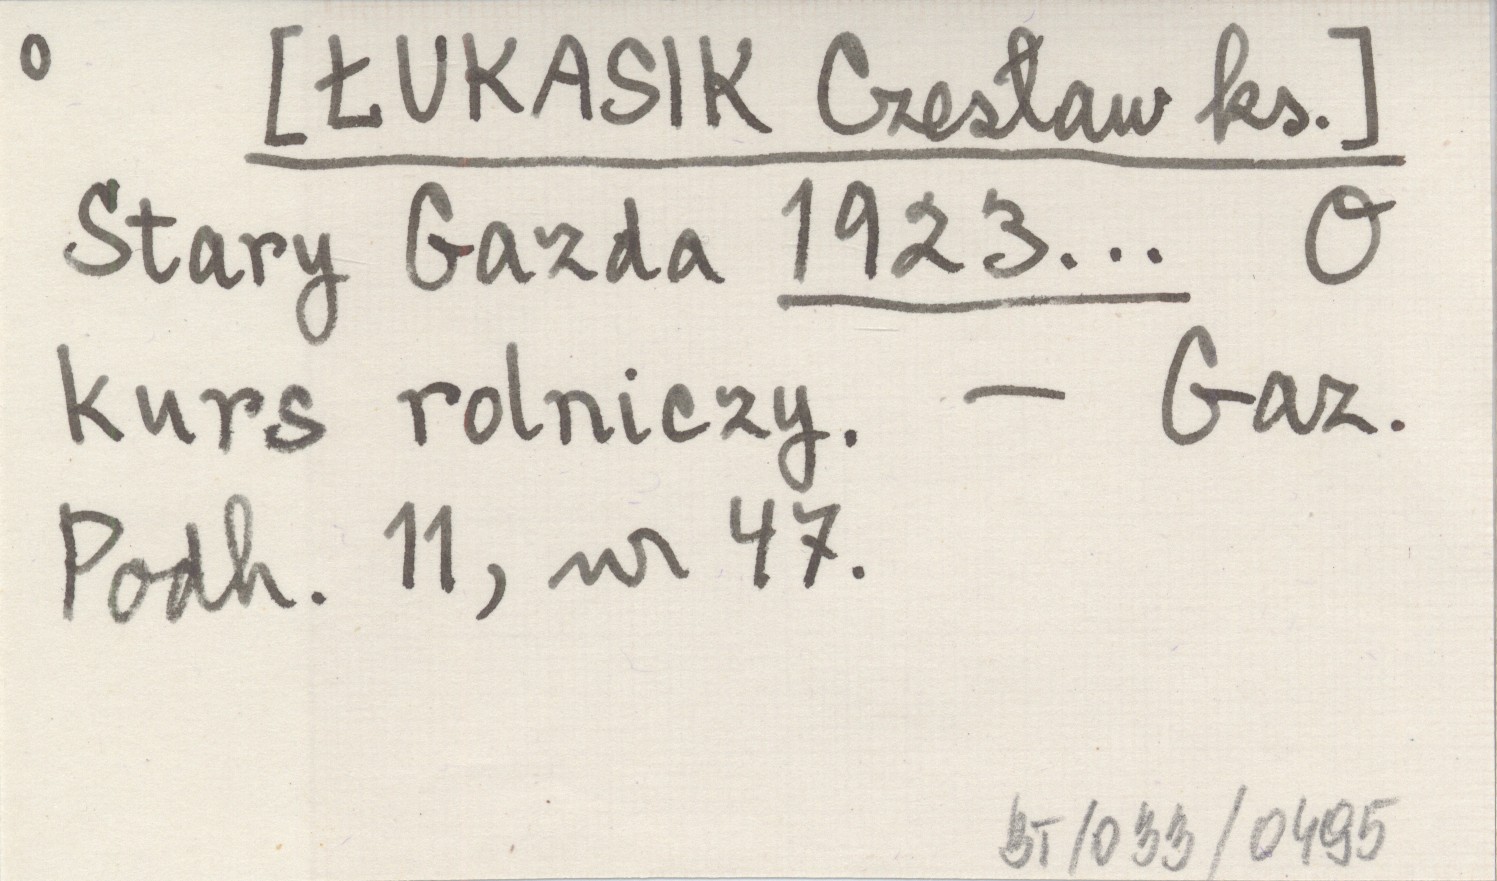 o [ŁUKASIK Czesław ks.]
Stary Gazda 1923... O
kurs rolniczy. — Gaz.
Podh. 11, nr 47.
BT/033/0495